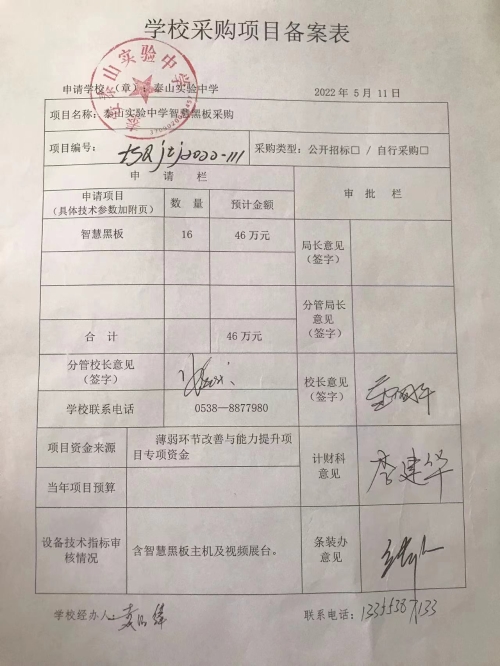 学校采购项目备案表
申请学校（章）：泰山实验中学 2022 年 5 月 11 日
项目名称：泰山实验中学智慧黑板采购
项目编号： 采购类型：公开招标□ / 自行采购□
申 请 栏 审 批 栏
申请项目
（具体技术参数加附页） 数 量 预计金额
智慧黑板 16 46 万元 局长意见
（签字）
分管局长
意见
（签字）
合 计 46 万元
分管校长意见
（签字） 校长意见
（签字）
学校联系电话 0538—8877980
项目资金来源 薄弱环节改善与能力提升项
目专项资金 计财科
意见 李建华
当年项目预算
设备技术指标审
核情况 含智慧黑板主机及视频展台。 条装办
意见
学校经办人： 联系电话：